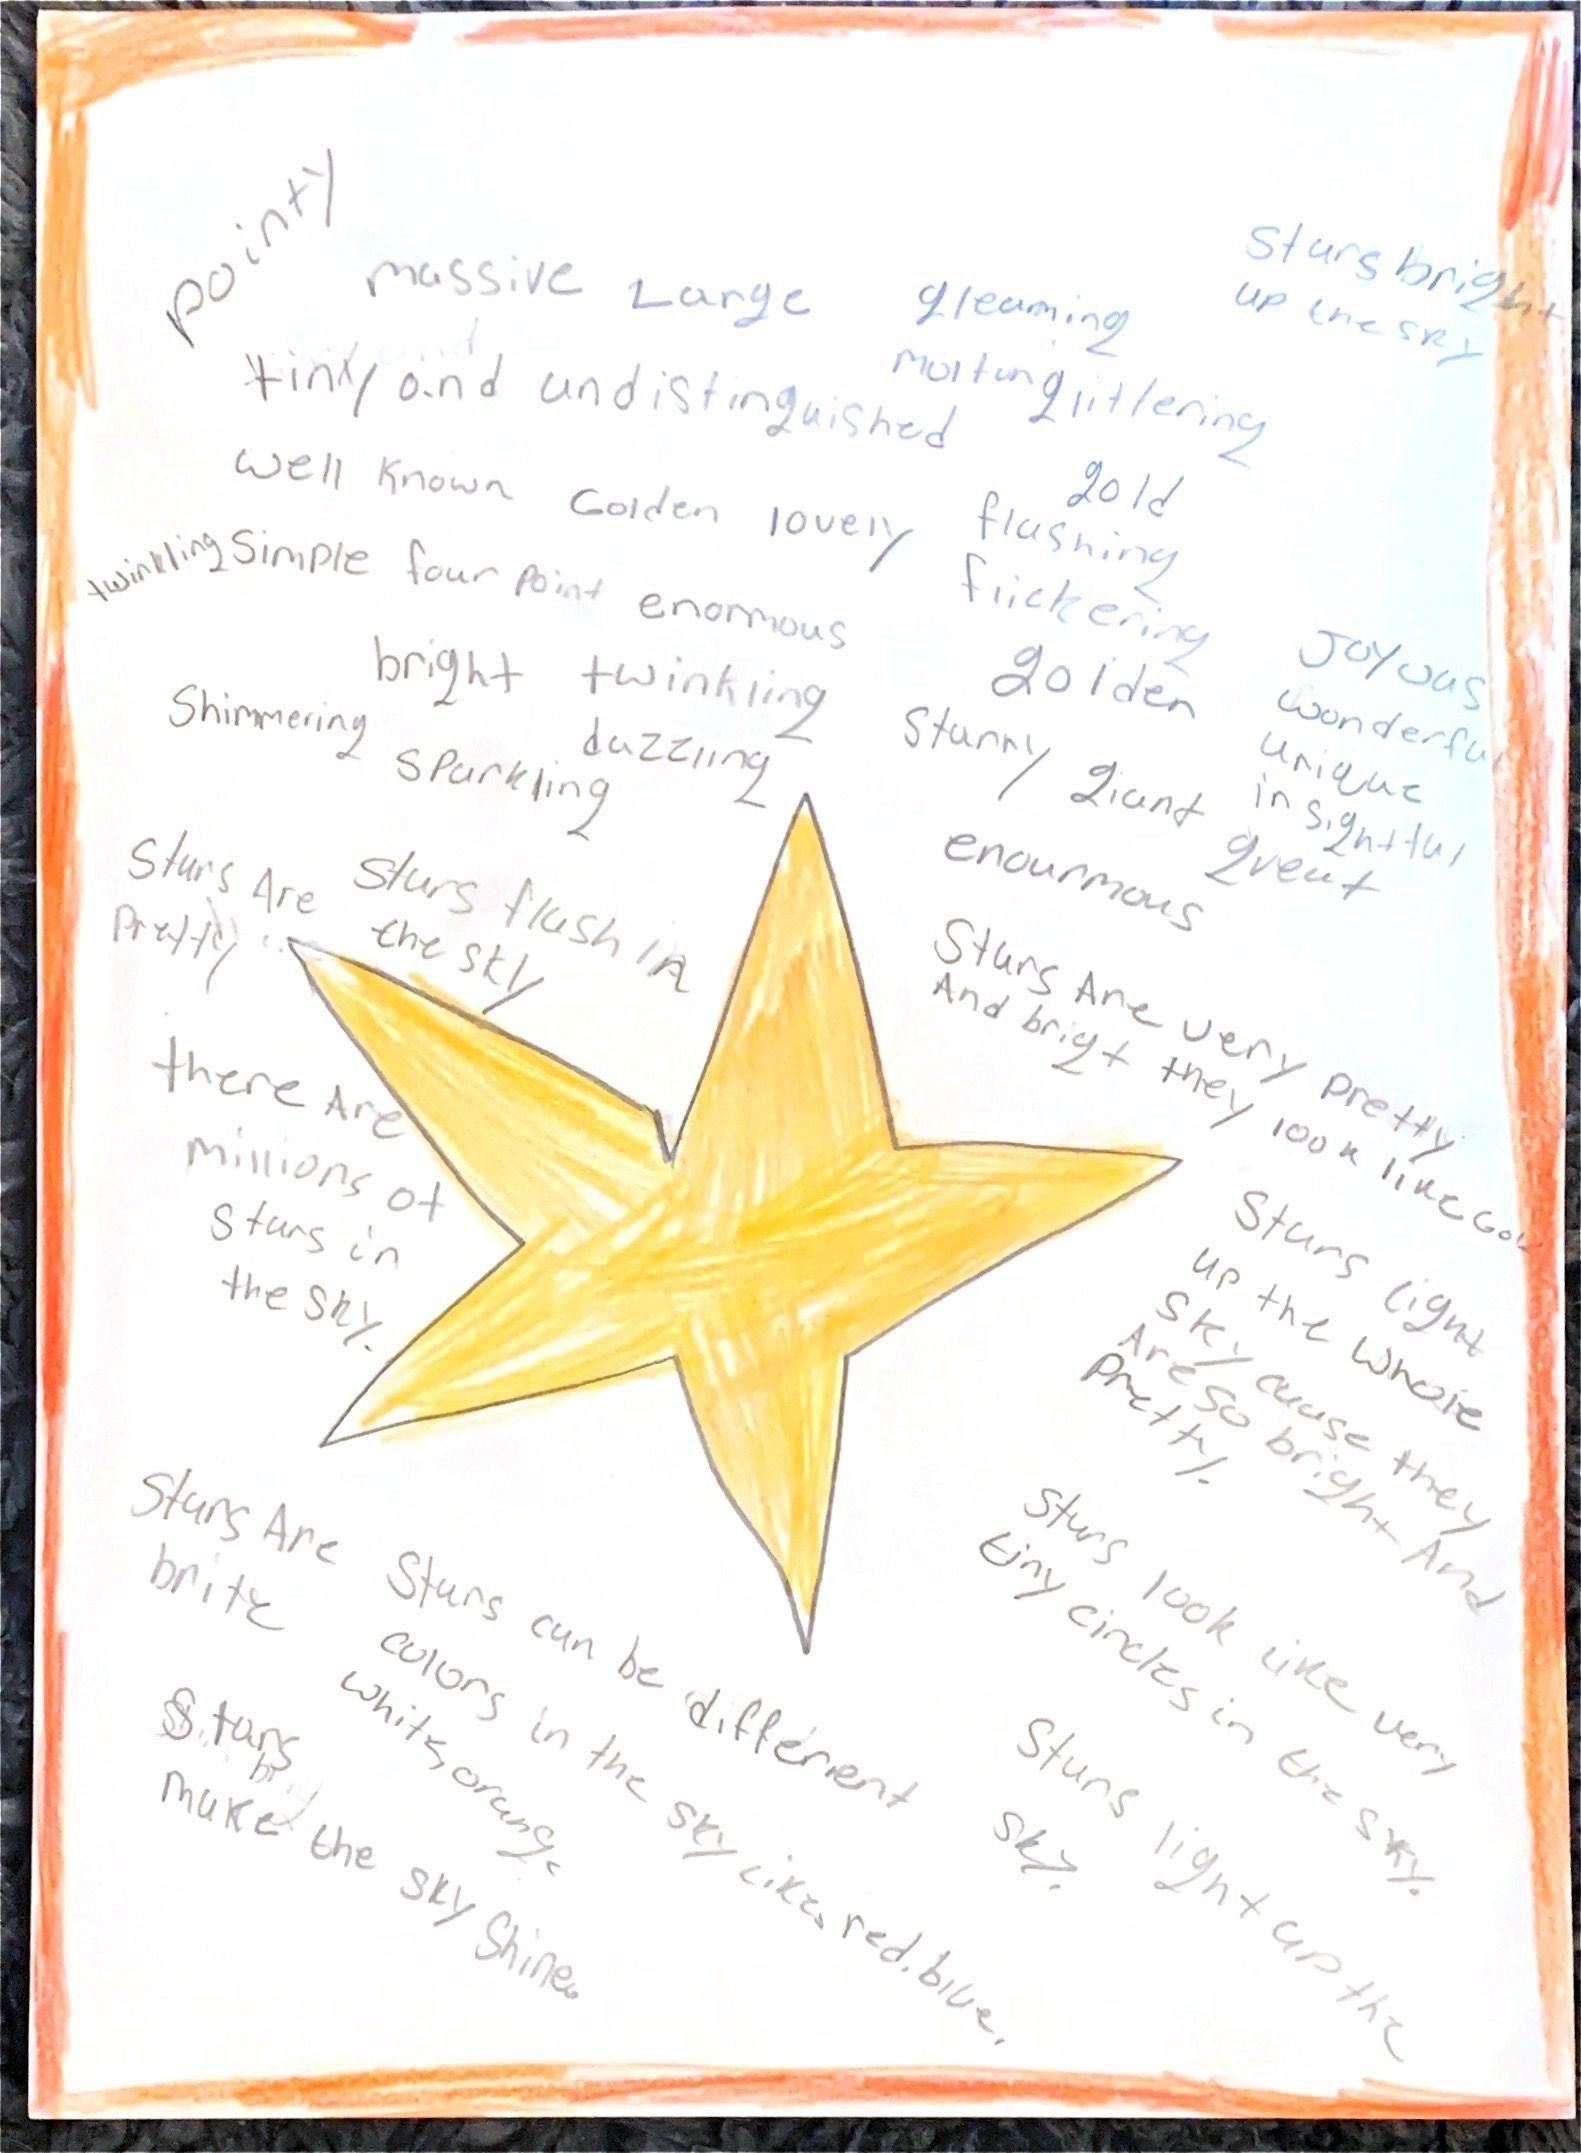 pointy
massive Large gleaming
Stars bright
up the sky
tiny and undistinguished
glittering
well known Golden lovely
gold
flashing
flickering
twinkling simple four point enormous
bright twinkling
golden
Shimmering
dazzling
sparkling
starry giant great
Joyous
wonderful
unique
insightful
enourmous
Stars Are
Pretty
Stars flash in
the sky
Stars Are very pretty.
And brigt they look like
there Are
millions of
stars in
the sky.
Stars light
up the whole
sky cause they
Are so bright And
pretty.
Stars look like very
tiny circles in the sky.
Stars light up the
sky.
Stars Are
brite
Stars can be different
colors in the sky like, red, blue,
white, orange
Stars
make the sky shine.